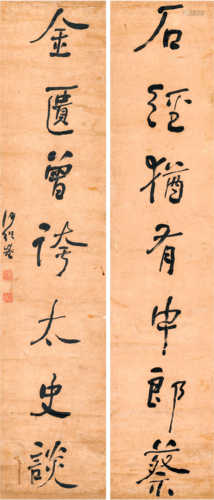 石經猶有中郎蔡
金匱曾誇太史談
何紹基